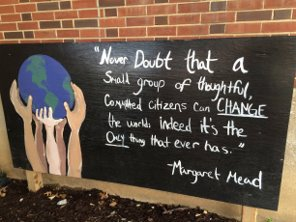 "Never Doubt that a
Small group of thoughtful,
Committed citizens can CHANGE
the world; indeed it's the
Only thing that ever has."
-Margaret Mead